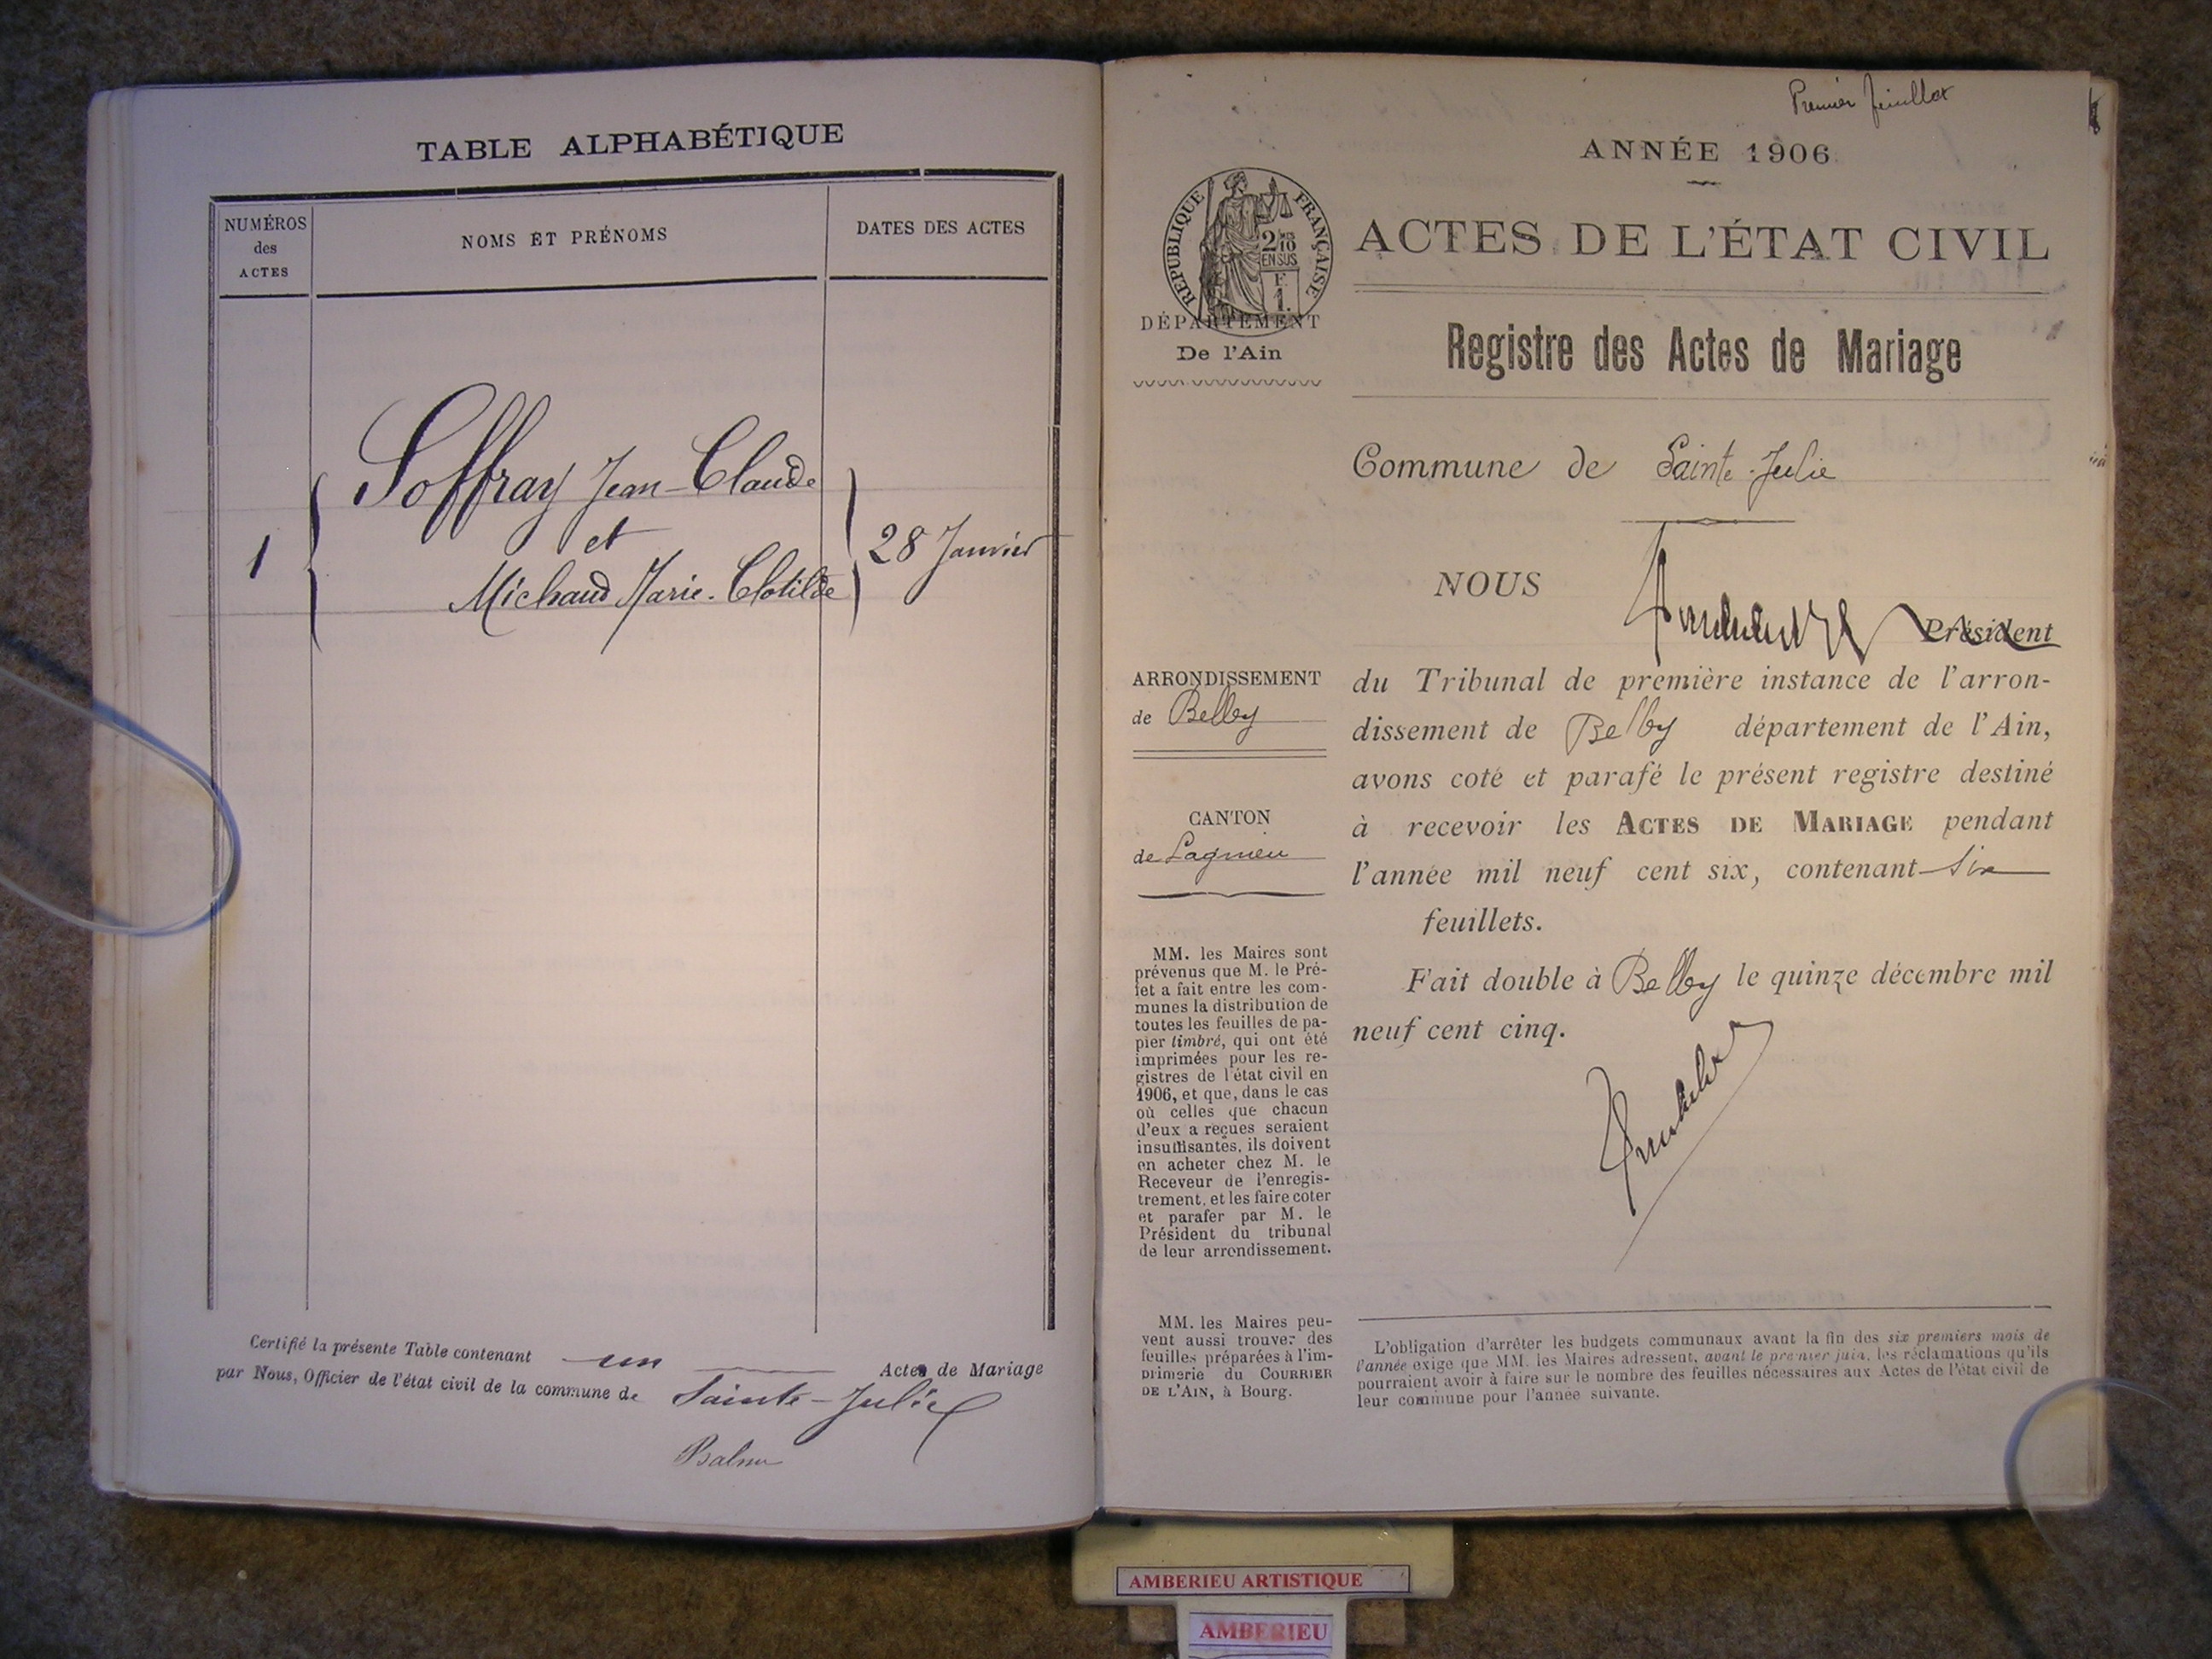 TABLE ALPHABÉTIQUE
NUMÉROS
des
ACTES
NOMS ET PRÉNOMS
DATES DES ACTES
Soffray Jean-Claude
et
1
28 Janvier
Michaud Marie-Clotilde
Certifié la présente Table contenant un Actes de Mariage
par Nous, Officier de l'état civil de la commune de Sainte-Julie
Premier feuillet
ANNÉE 1906
RÉPUBLIQUE FRANÇAISE
2/10
EN SUS
F.
1.
DÉPARTEMENT
De l'Ain
ACTES DE L'ÉTAT CIVIL
Registre des Actes de Mariage
Commune de Sainte-Julie
NOUS
Président
ARRONDISSEMENT
de Belley
CANTON
de Lagnieu
du Tribunal de première instance de l'arron-
dissement de Belley département de l'Ain,
avons coté et parafé le présent registre destiné
à recevoir les ACTES DE MARIAGE pendant
l'année mil neuf cent six, contenant six
feuillets.
Fait double à Belley le quinze décembre mil
neuf cent cinq.
MM. les Maires sont
prévenus que M. le Pré-
fet a fait entre les com-
munes la distribution de
toutes les feuilles de pa-
pier timbré, qui ont été
imprimées pour les re-
gistres de l'état civil en
1906, et que, dans le cas
où celles que chacun
d'eux a reçues seraient
insuffisantes, ils doivent
en acheter chez M. le
Receveur de l'enregis-
trement, et les faire coter
et parafer par M. le
Président du tribunal
de leur arrondissement.
MM. les Maires peu-
vent aussi trouver des
feuilles préparées à l'im-
primerie du COURRIER
DE L'AIN, à Bourg.
L'obligation d'arrêter les budgets communaux avant la fin des six premiers mois de
l'année exige que MM. les Maires adressent, avant le premier juin, les réclamations qu'ils
pourraient avoir à faire sur le nombre des feuilles nécessaires aux Actes de l'état civil de
leur commune pour l'année suivante.
AMBERIEU ARTISTIQUE
AMBERIEU